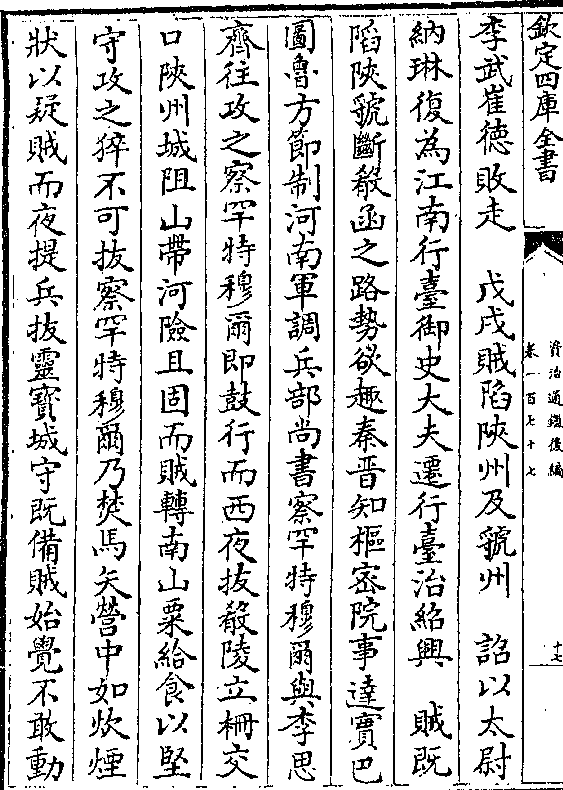 欽定四庫全書
資治通鑑後編
卷一百七十七
十七
李武崔德敗走　戊戌賊陷陝州及虢州　詔以太尉
納琳復為江南行臺御史大夫遷行臺治紹興　賊既
陷陝虢斷殽函之路勢欲趣秦晉知樞密院事達實巴
圖魯方節制河南軍調兵部尚書察罕特穆爾與李思
齊往攻之察罕特穆爾即鼓行而西夜拔殽陵立柵交
口陝州城阻山帶河險且固而賊轉南山粟給食以堅
守攻之猝不可拔察罕特穆爾乃焚馬矢營中如炊煙
狀以疑賊而夜提兵拔靈寶城守既備賊始覺不敢動